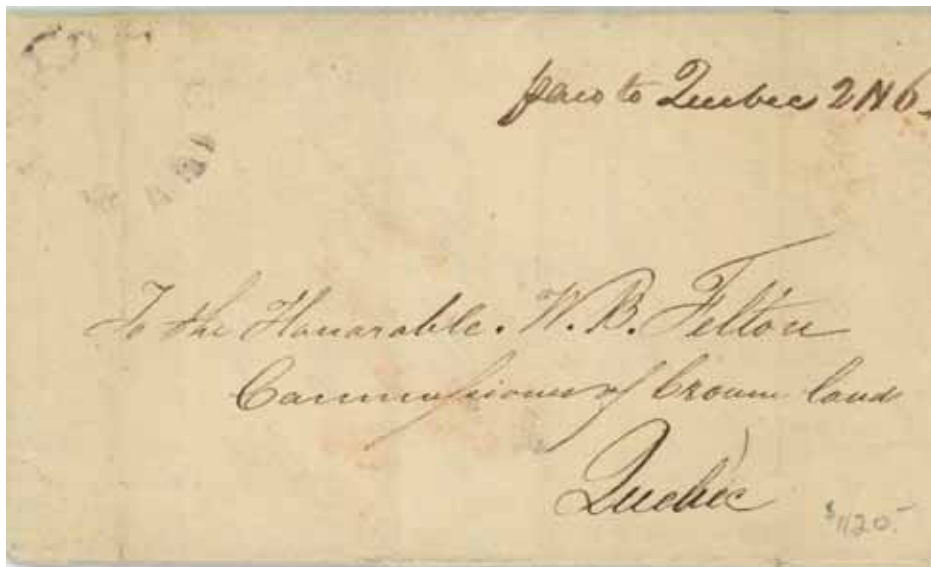 paid to Quebec 2N6
To the Honorable. W. B. Felton
Commissioner of Crown land
Québec
$1120.-